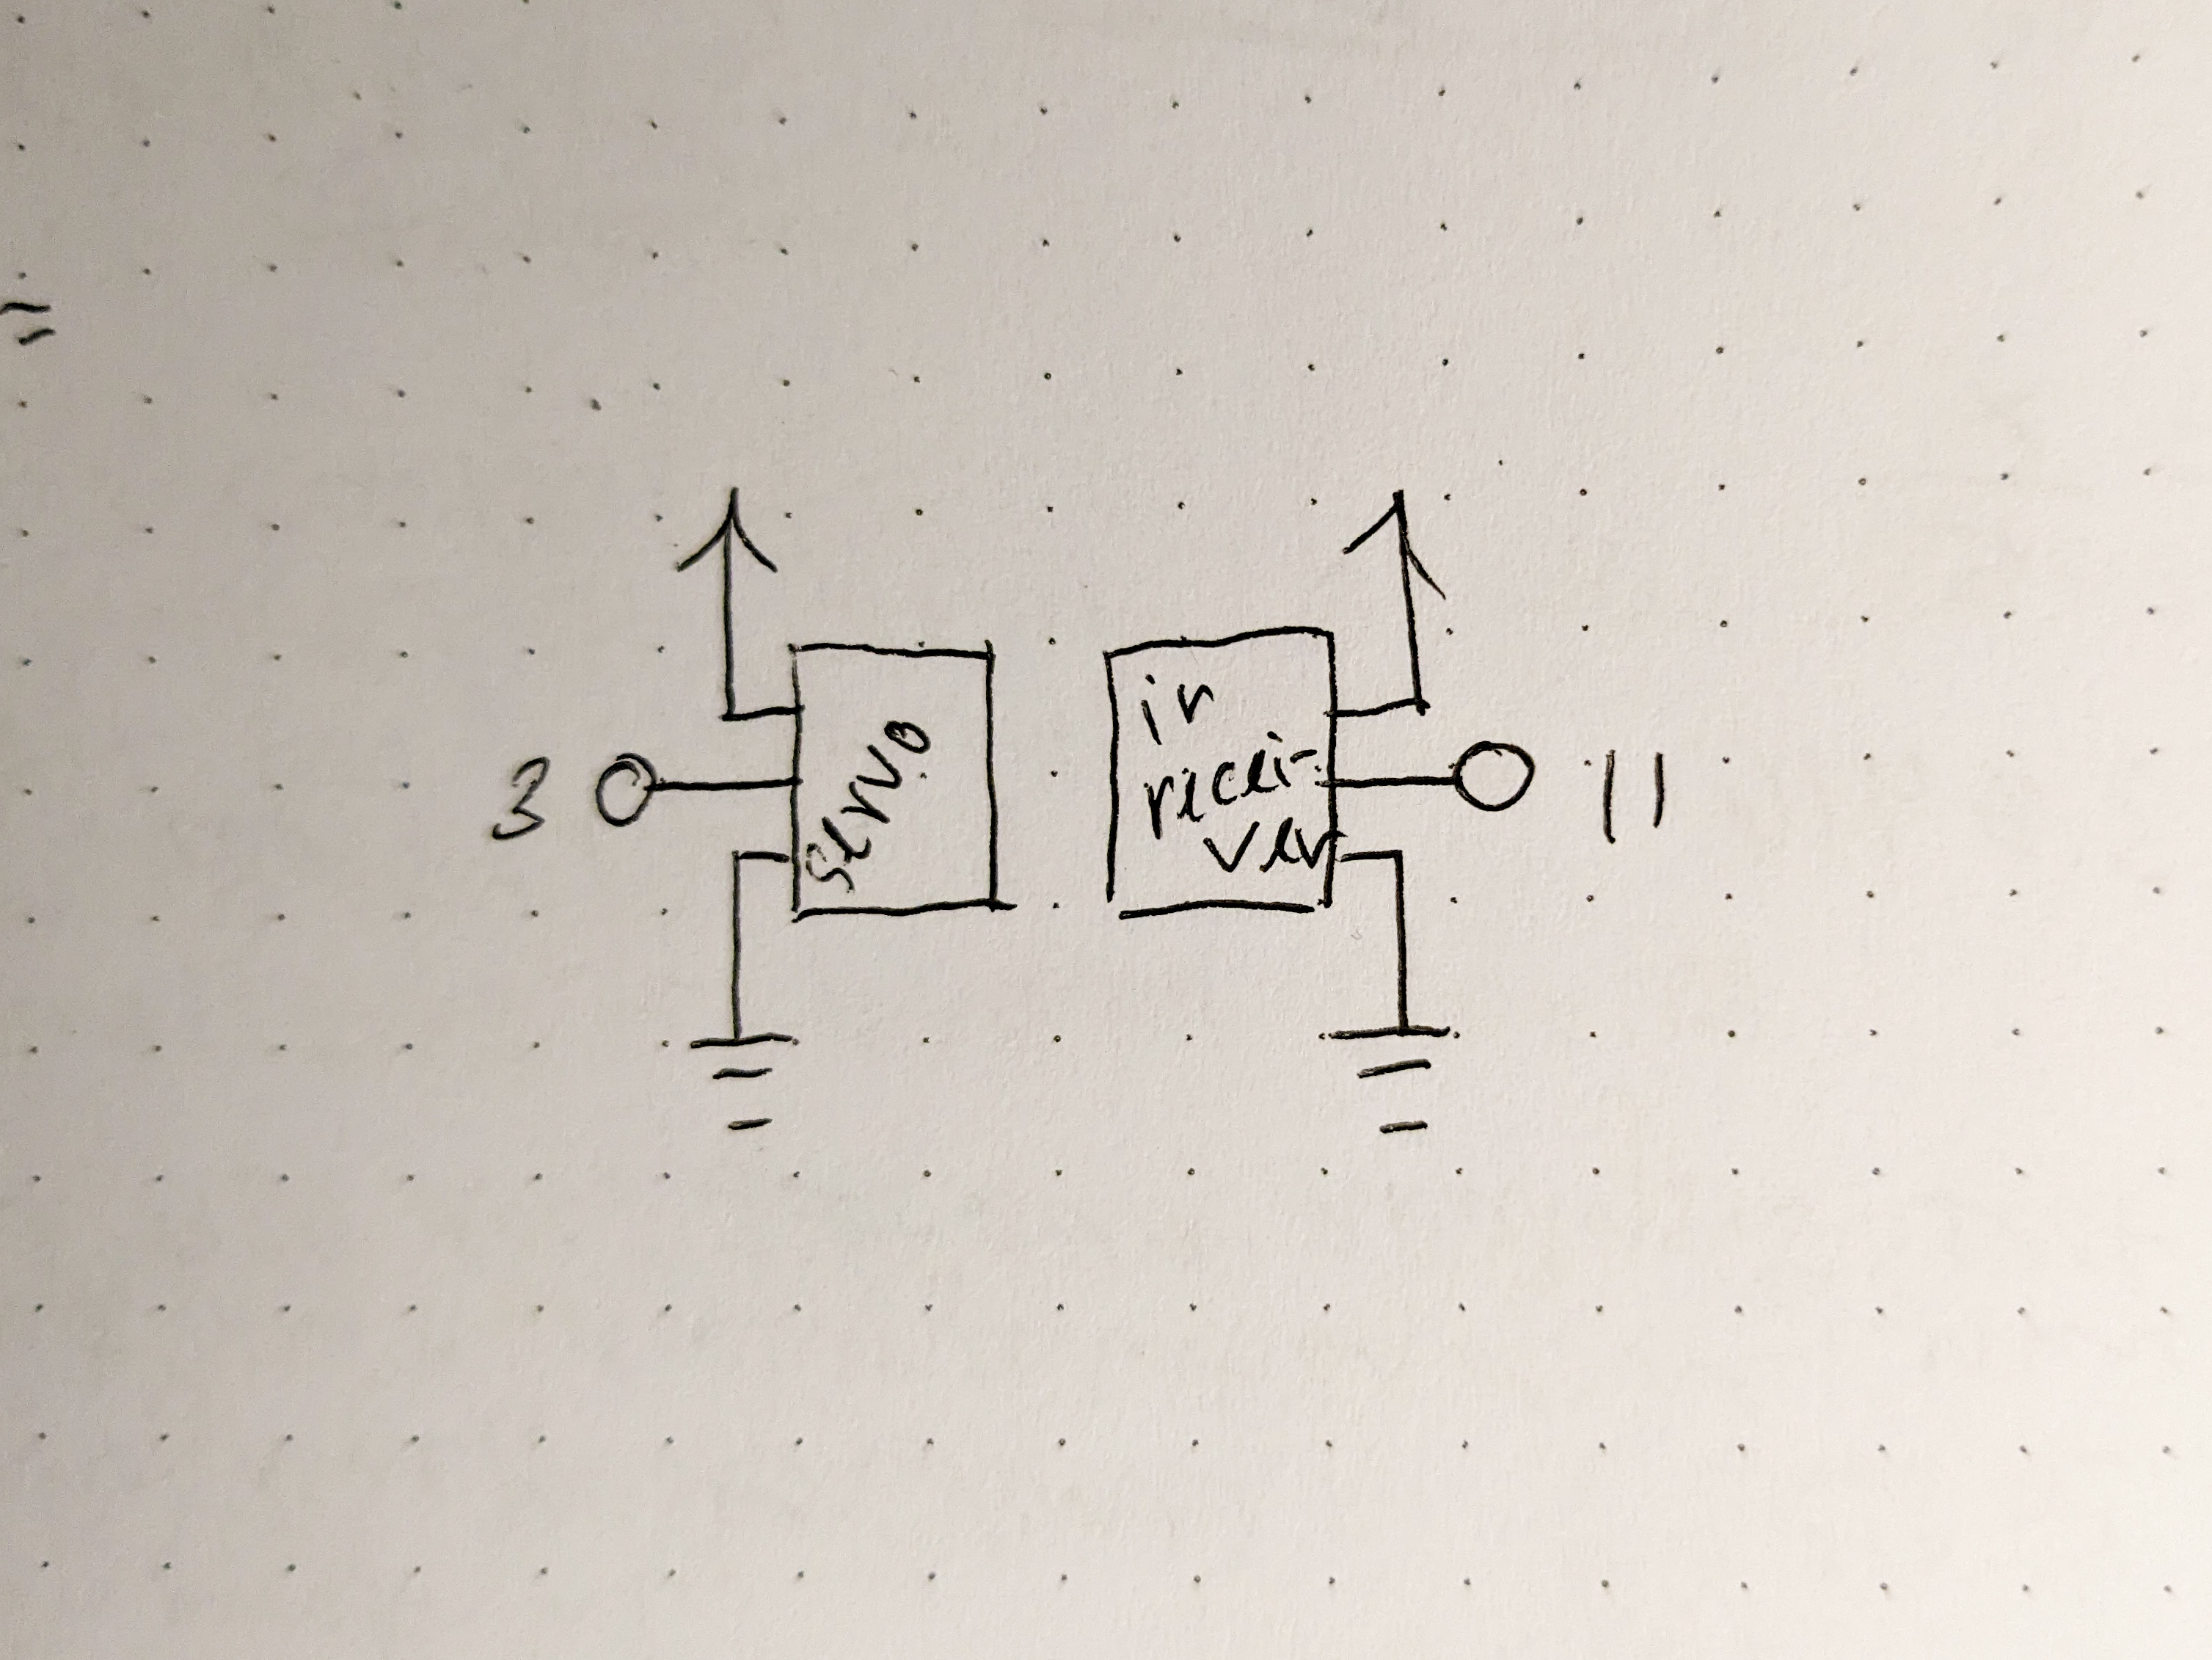 3
servo
ir
recei-
ver
11